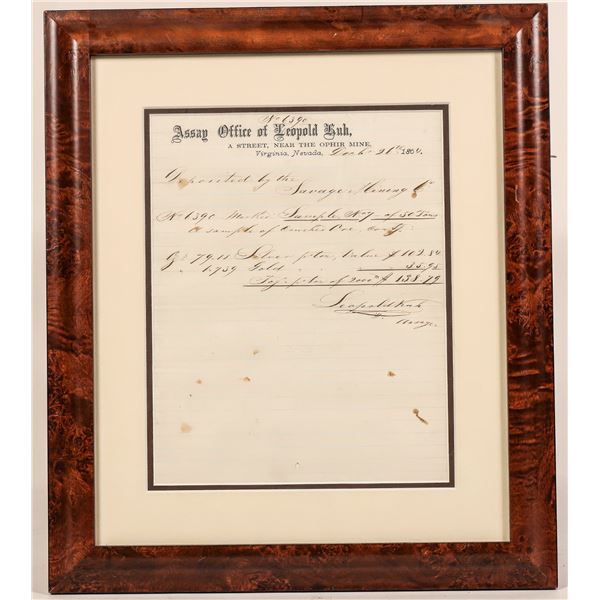 No 6390
Assay Office of Leopold Kuh,
A STREET, NEAR THE OPHIR MINE,
Virginia, Nevada, Decbr 21st 1864
Deposited by the
Savage Mining Co
No 6390 Marked Sample No 7 of 50 Tons
A sample of Crushed Ore,
79.11 Silver p ton, Value $ 102.84
1.739 Gold " " 35.95
p ton of 2000 $ 138.79
Leopold Kuh
Assayer